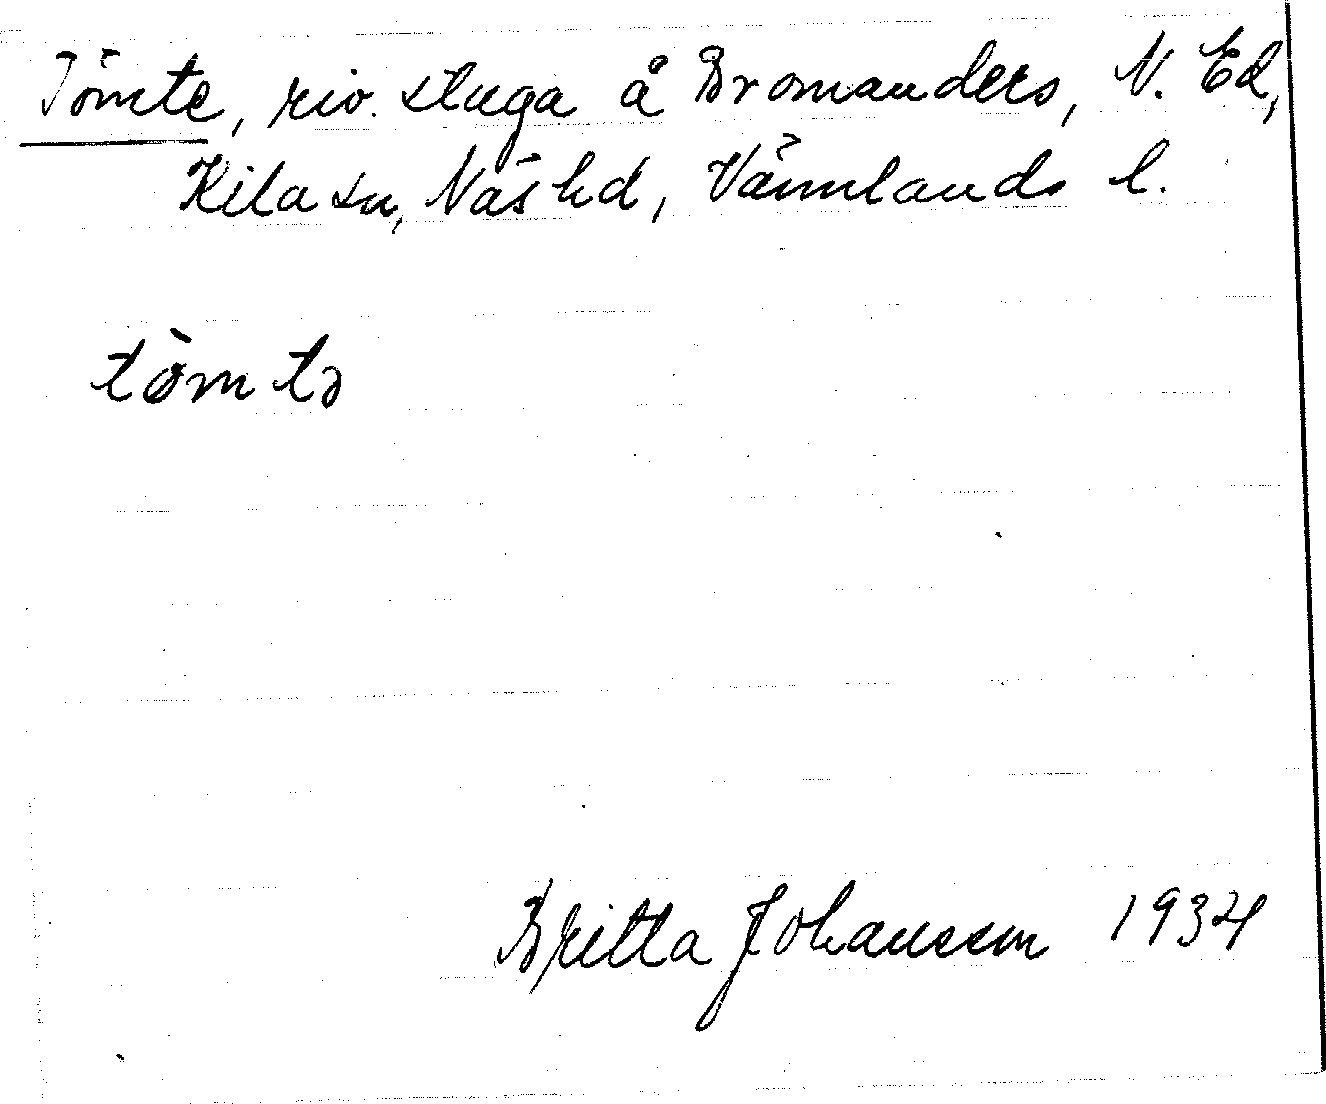 Tömte, riv. stuga å Bromanders, N. Ed,
Kila sn, Näs hd, Värmlands l.
tömtə
Britta Johansson 1934